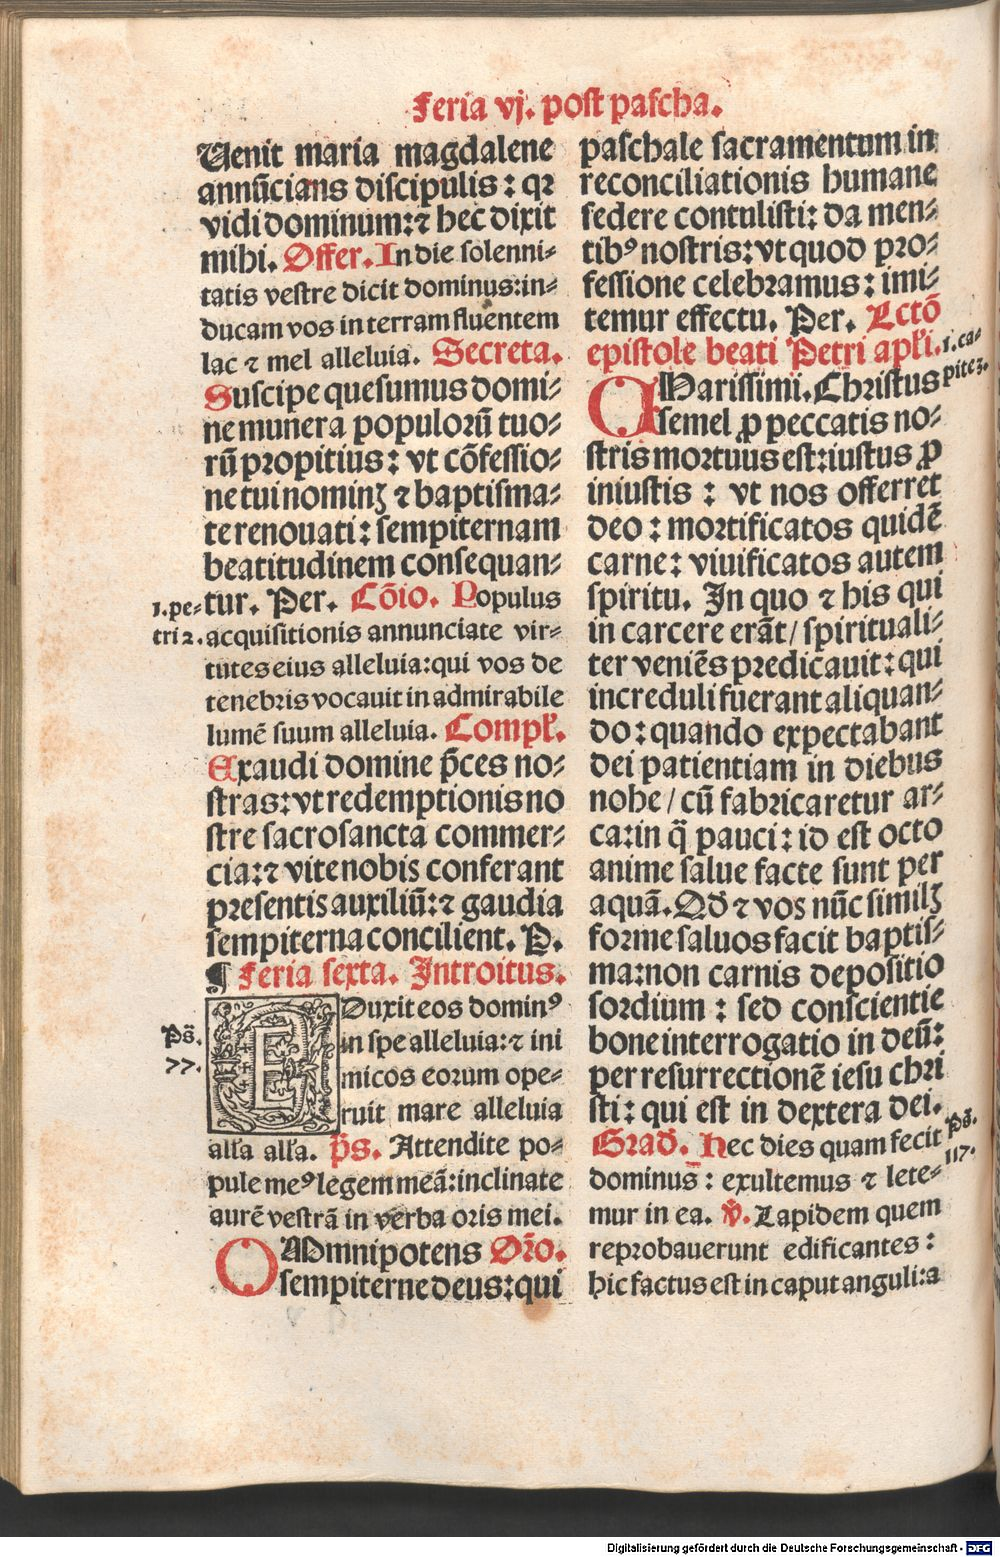 Feria vj. post pascha.
Uenit maria magdalene
annũcians discipulis: qꝛ
vidi dominum: ⁊ hec dixit
mihi. Offer. In die solenni⸗
tatis vestre dicit dominus: in⸗
ducam vos in terram fluentem
lac ⁊ mel alleluia. Secreta.
Suscipe quesumus domi⸗
ne munera populorũ tuo⸗
rũ propitius: vt cõfessio⸗
ne tui nominꝫ ⁊ baptisma⸗
te renouati: sempiternam
beatitudinem consequan⸗
1.pe⸗ tur. Per. Cõio. Populus
tri 2. acquisitionis annunciate vir⸗
tutes eius alleluia: qui vos de
tenebris vocauit in admirabile
lumẽ suum alleluia. Compl'.
Exaudi domine p̃ces no⸗
stras: vt redemptionis no
stre sacrosancta commer⸗
cia: ⁊ vite nobis conferant
presentis auxiliũ: ⁊ gaudia
sempiterna concilient. P.
¶ Feria sexta. Introitus.
EDuxit eos dominꝰ
Ps̃. in spe alleluia: ⁊ ini
77. micos eorum ope⸗
ruit mare alleluia
alľa alľa. p̃s. Attendite po⸗
pule meꝰ legem meã: inclinate
aurẽ vestrã in verba oris mei.
OMnipotens Or̃o.
sempiterne deus: qui
paschale sacramentum in
reconciliationis humane
federe contulisti: da men⸗
tibꝰ nostris: vt quod pro⸗
fessione celebramus: imi⸗
temur effectu. Per. Lctõ
epistole beati Petri apľi. 1.ca⸗
CHarissimi. Christus pite 3.
semel ꝓ peccatis no⸗
stris mortuus est: iustus ꝓ
iniustis: vt nos offerret
deo: mortificatos quidẽ
carne: viuificatos autem
spiritu. In quo ⁊ his qui
in carcere erãt / spirituali⸗
ter veniẽs predicauit: qui
increduli fuerant aliquan⸗
do: quando expectabant
dei patientiam in diebus
nohe / cũ fabricaretur ar⸗
ca: in q̃ pauci: id est octo
anime salue facte sunt per
aquã. Qđ ⁊ vos nũc similꝫ
forme saluos facit baptis⸗
ma: non carnis depositio
sordium: sed conscientie
bone interrogatio in deũ:
per resurrectionẽ iesu chri
sti: qui est in dextera dei.
Građ. Hec dies quam fecit Ps̃.
dominus: exultemus ⁊ lete⸗ 117.
mur in ea. v̓. Lapidem quem
reprobauerunt edificantes:
hic factus est in caput anguli: a
Digitalisierung gefördert durch die Deutsche Forschungsgemeinschaft - DFG